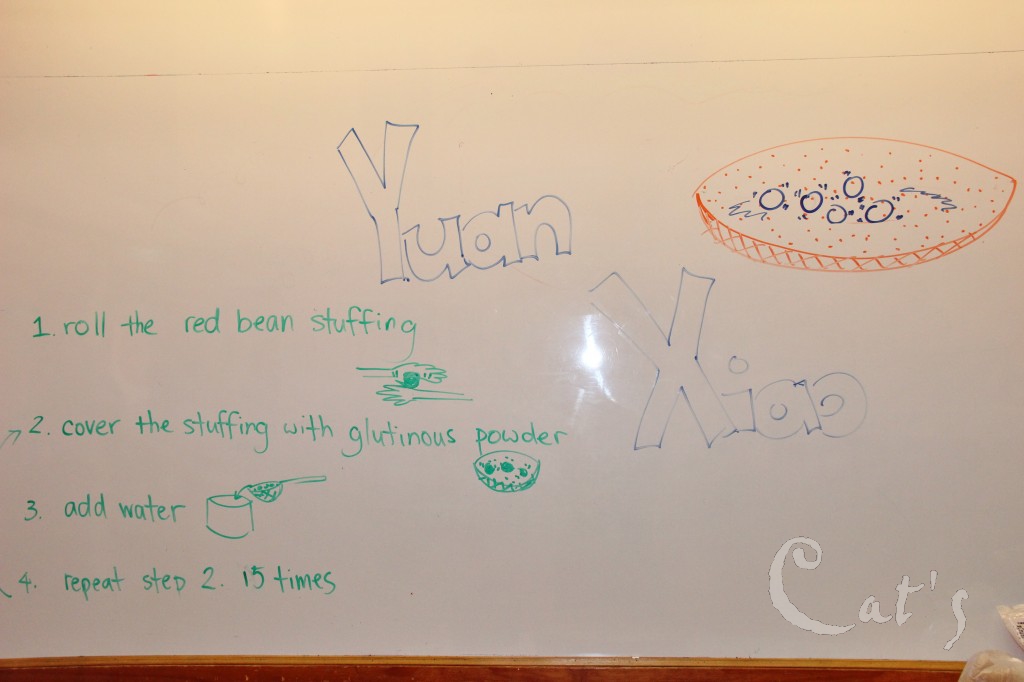 Yuan
Xiao
1. roll the red bean stuffing
2. cover the stuffing with glutinous powder
3. add water
4. repeat step 2. 15 times
Cat's